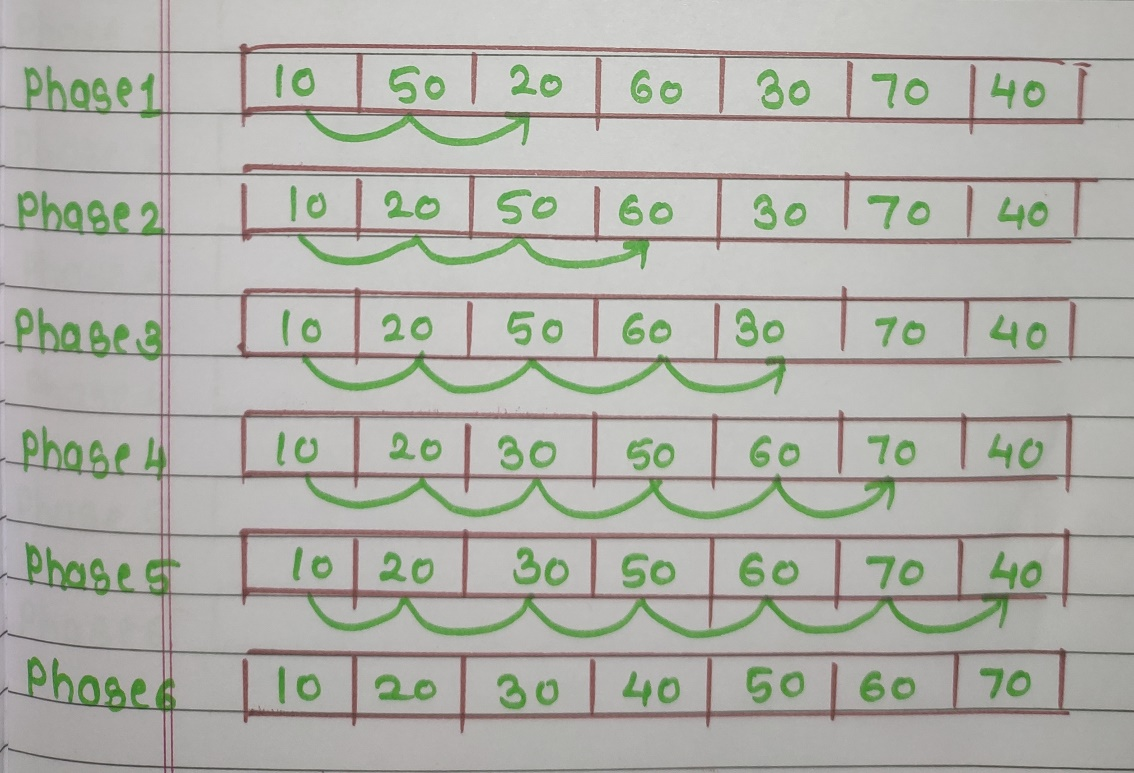 Phase1 10 50 20 60 30 70 40
Phase2 10 20 50 60 30 70 40
Phase3 10 20 50 60 30 70 40
Phase4 10 20 30 50 60 70 40
Phase5 10 20 30 50 60 70 40
Phase6 10 20 30 40 50 60 70